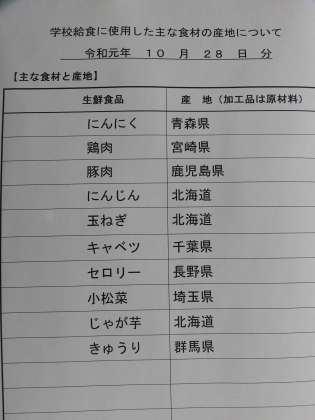 学校給食に使用した主な食材の産地について
令和元年 10 月 28 日 分
【主な食材と産地】
生鮮食品 産 地(加工品は原材料)
にんにく 青森県
鶏肉 宮崎県
豚肉 鹿児島県
にんじん 北海道
玉ねぎ 北海道
キャベツ 千葉県
セロリー 長野県
小松菜 埼玉県
じゃが芋 北海道
きゅうり 群馬県